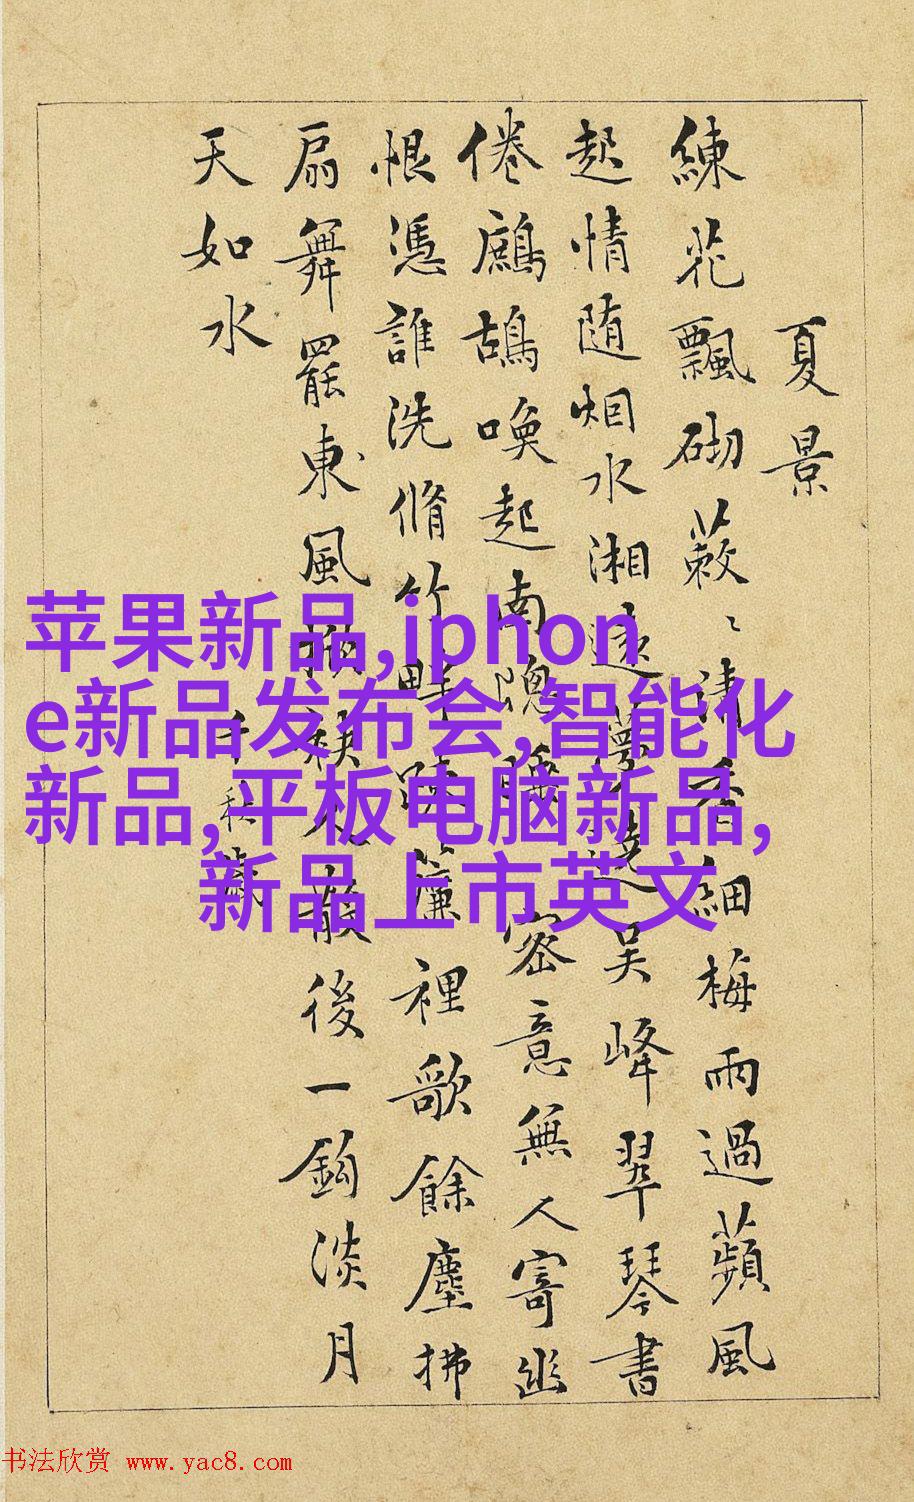 夏景
練花飄砌蔌〻清香細梅雨過蘋風
起情随烟水湘遠夢遶吳峰翠琴書
倦鷓鴣喚起南窻睡密意無人寄幽
恨憑誰洗脩竹畔疎簾裡歌餘塵拂
扇舞罷東風掀袂人散後一鈎淡月
天如水
千秋歲
苹果新品,iphon
e新品发布会,智能化
新品,平板电脑新品,
新品上市英文
书法欣赏 www.yac8.com